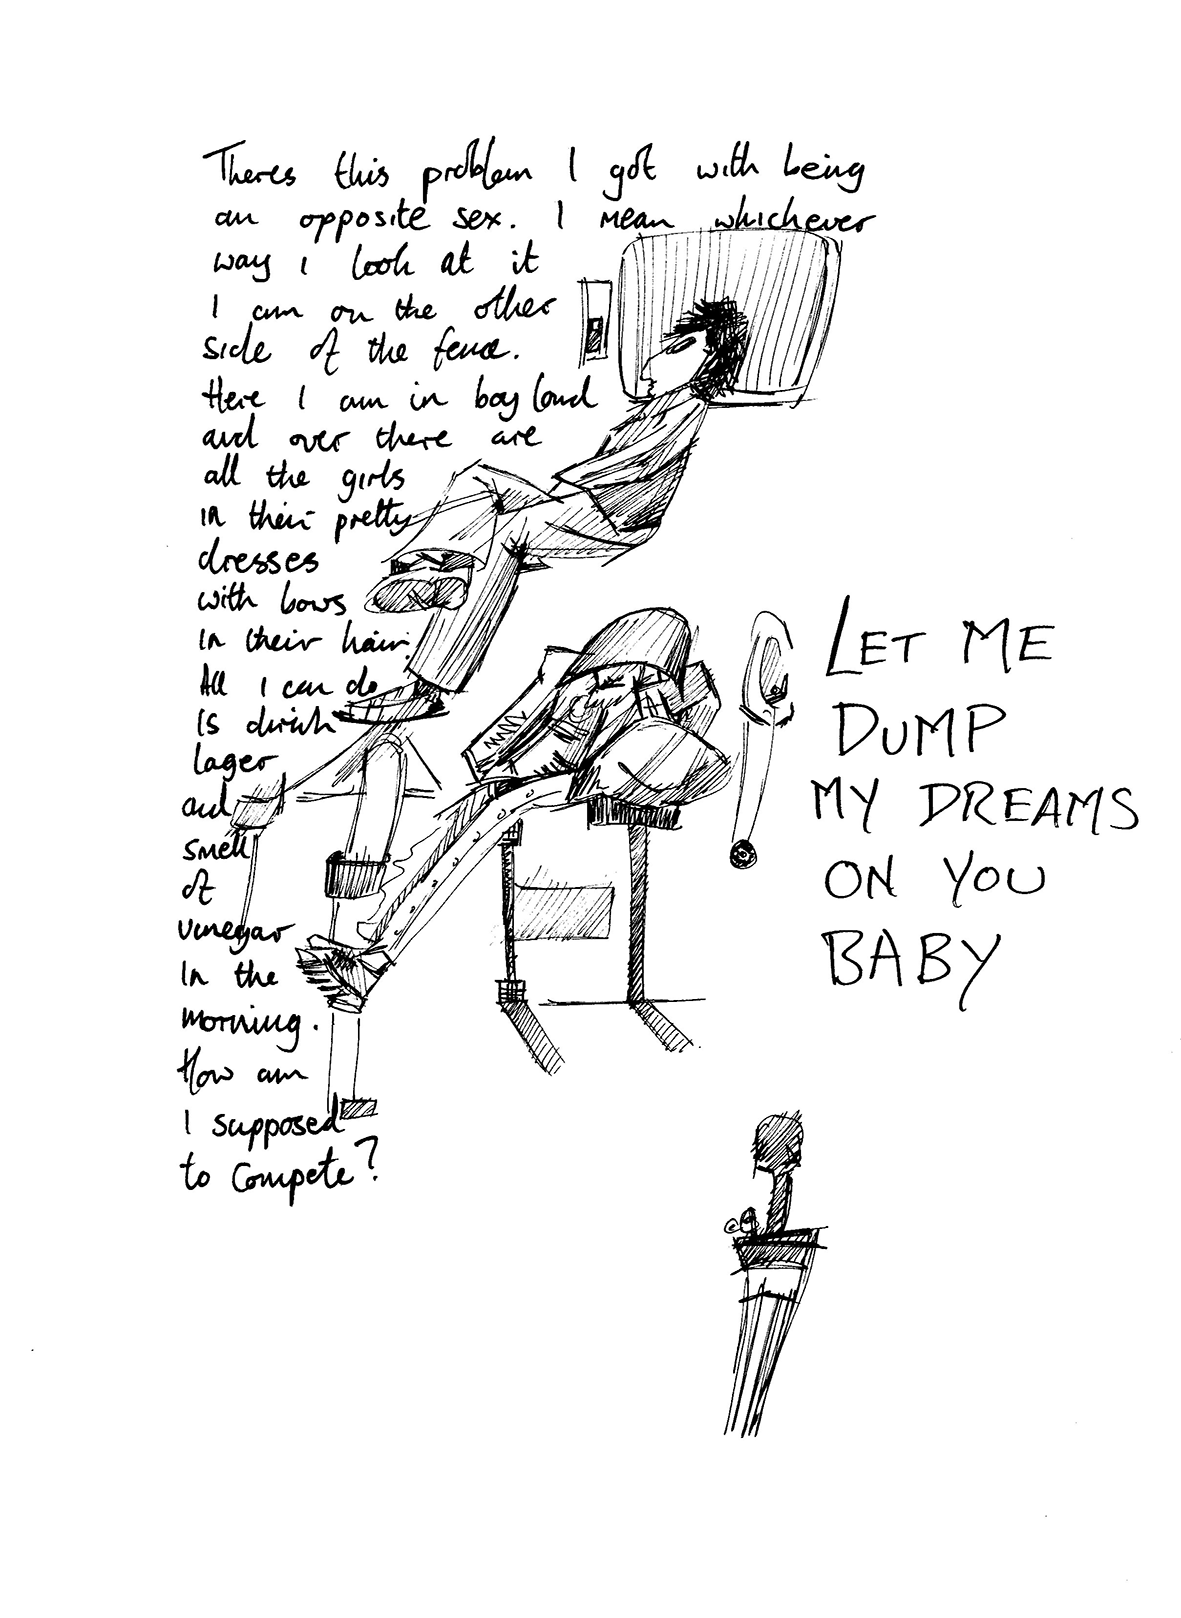 Theres this problem I got with being
an opposite sex. I mean whichever
way I look at it
I am on the other
side of the fence.
Here I am in boy land
and over there are
all the girls
in their pretty
dresses
with bows
in their hair.
All I can do
is drink
lager
and
smell
of
vinegar
in the
morning.
How am
I supposed
to compete?
LET ME
DUMP
MY DREAMS
ON YOU
BABY